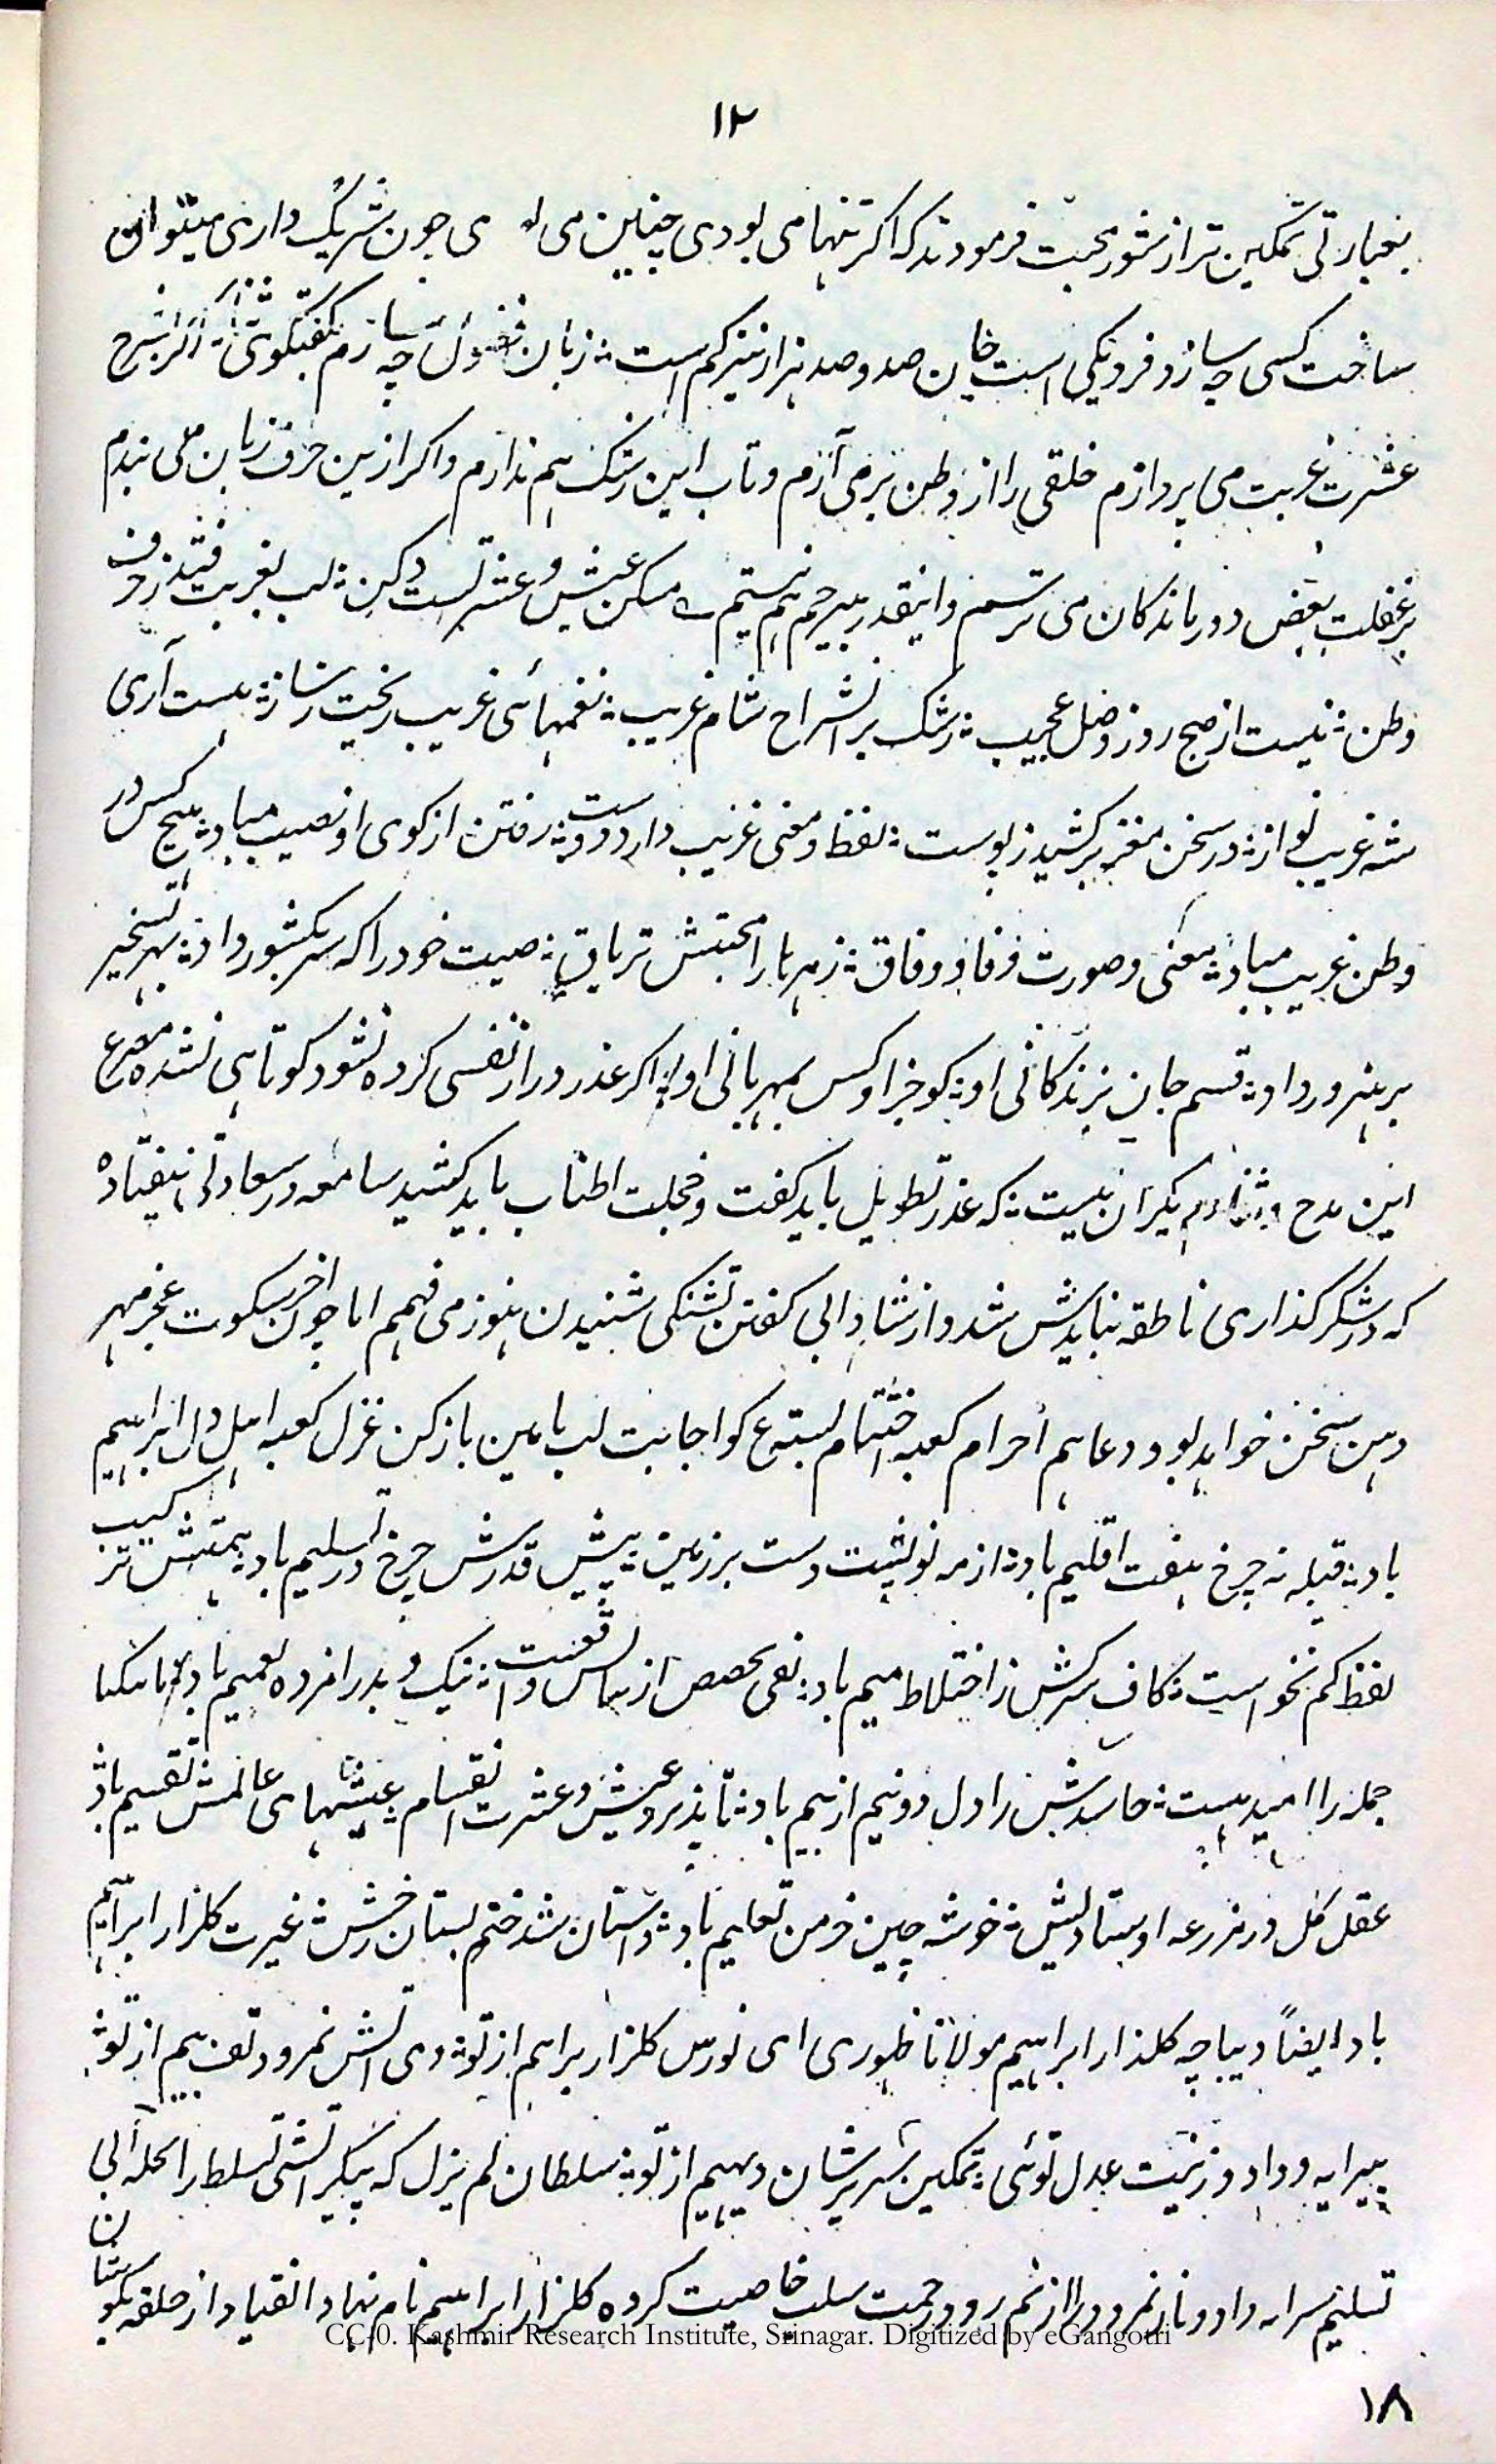 ۱۲
بعبارتی تمکین تر از شور محبت فرمودند که اکر تنها می بودی چنین می چون شریک داری میتوان
ساخت کسی چه سازد فرد یکی است خاین صد و صد هزار نیز کم است زبان چه سازم کفتکوی اکر شرح
عشرت غربت می پردازم خلقی را از وطن بر می آرم و تاب این رشک هم ندارم و اکر ازین حرف زبان می بندم
بر غفلت بعض دورماندکان می ترسم و اینقدر بیرحم هم نیستم مسکن عیش و عشرتست دکن لب بغربت فتد ز حرف
وطن نیست از صبح روز وصل عجیب رشک بر انشراح شام غریب نغمهائی غریب ریخت ز ساز هست آری
شه غریب نواز در سخن مغز بر کشید ز پوست لفظ و معنی غریب دارد دوست رفتن از کوی او نصیب مباد هیچ کس در
وطن غریب مباد معنی و صورت وفا و وفاق زهرها را محبتش تریاق صیت خود را که سر بکشور داد بهر تسخیر
بر هنرور داد قسم جان بزندکانی او کو جز او کس بمهربانی او اکر عذر دراز نفسی کرده نشود کوتاهی نشده مصرع
این مدح و ثنا دیکران نیست که عذر تطویل باید کفت و خجلت اطناب باید کشید سامعه در سعادتی نیفتاده
که در شکر کذاری ناطقه نبایدش شد و از شادابی کفتن تشنکی شنیدن هنوز می فهمم اما چون آخر سکوت عجز مهر
دهن سخن خواهد بود دعا هم احرام کعبه اختتام بسته ع کو اجابت لب بامین باز کن غزل کعبه اهل دل ابراهیم
باد قبله نه چرخ هفت اقلیم باد از مه نو پشت دست بر زمین پیش قدرش چرخ در تسلیم باد همتش ترکیب
لفظ کم نخواست کاف سرکش ز اختلاط میم باد نفی تخصص از لباس واقفیت نیک و بد را مژده تعمیم باد
جمله را امید هست حاسدش را دل دو نیم از بیم باد تا پذیرد عیش و عشرت انقسام عیشهای عالمش تقسیم باد
عقل کل در مزرعه اوستادیش خوشه چین خرمن تعلیم باد داستان شد ختم بستان رخش غیرت کلزار ابراهیم
باد ایضاً دیباچه کلذار ابراهیم مولانا ظهوری ای نورس کلزار براهیم از تو وی آتش نمرود تف بیم از تو
پیرایه و داد و زینت عدل توئی تمکین سریر شان دیهیم از تو سلطان لم یزل که پیکر آتشی تسلط را بحله آبی
تسلیم سرایه داد و نار نمرود را از نم رود رحمت سلب خاصیت کرده کلزار ابراهیم نام نهاد انقیاد از حلقه بکوشان
CC-0. Kashmir Research Institute, Srinagar. Digitized by eGangotri
۱۸